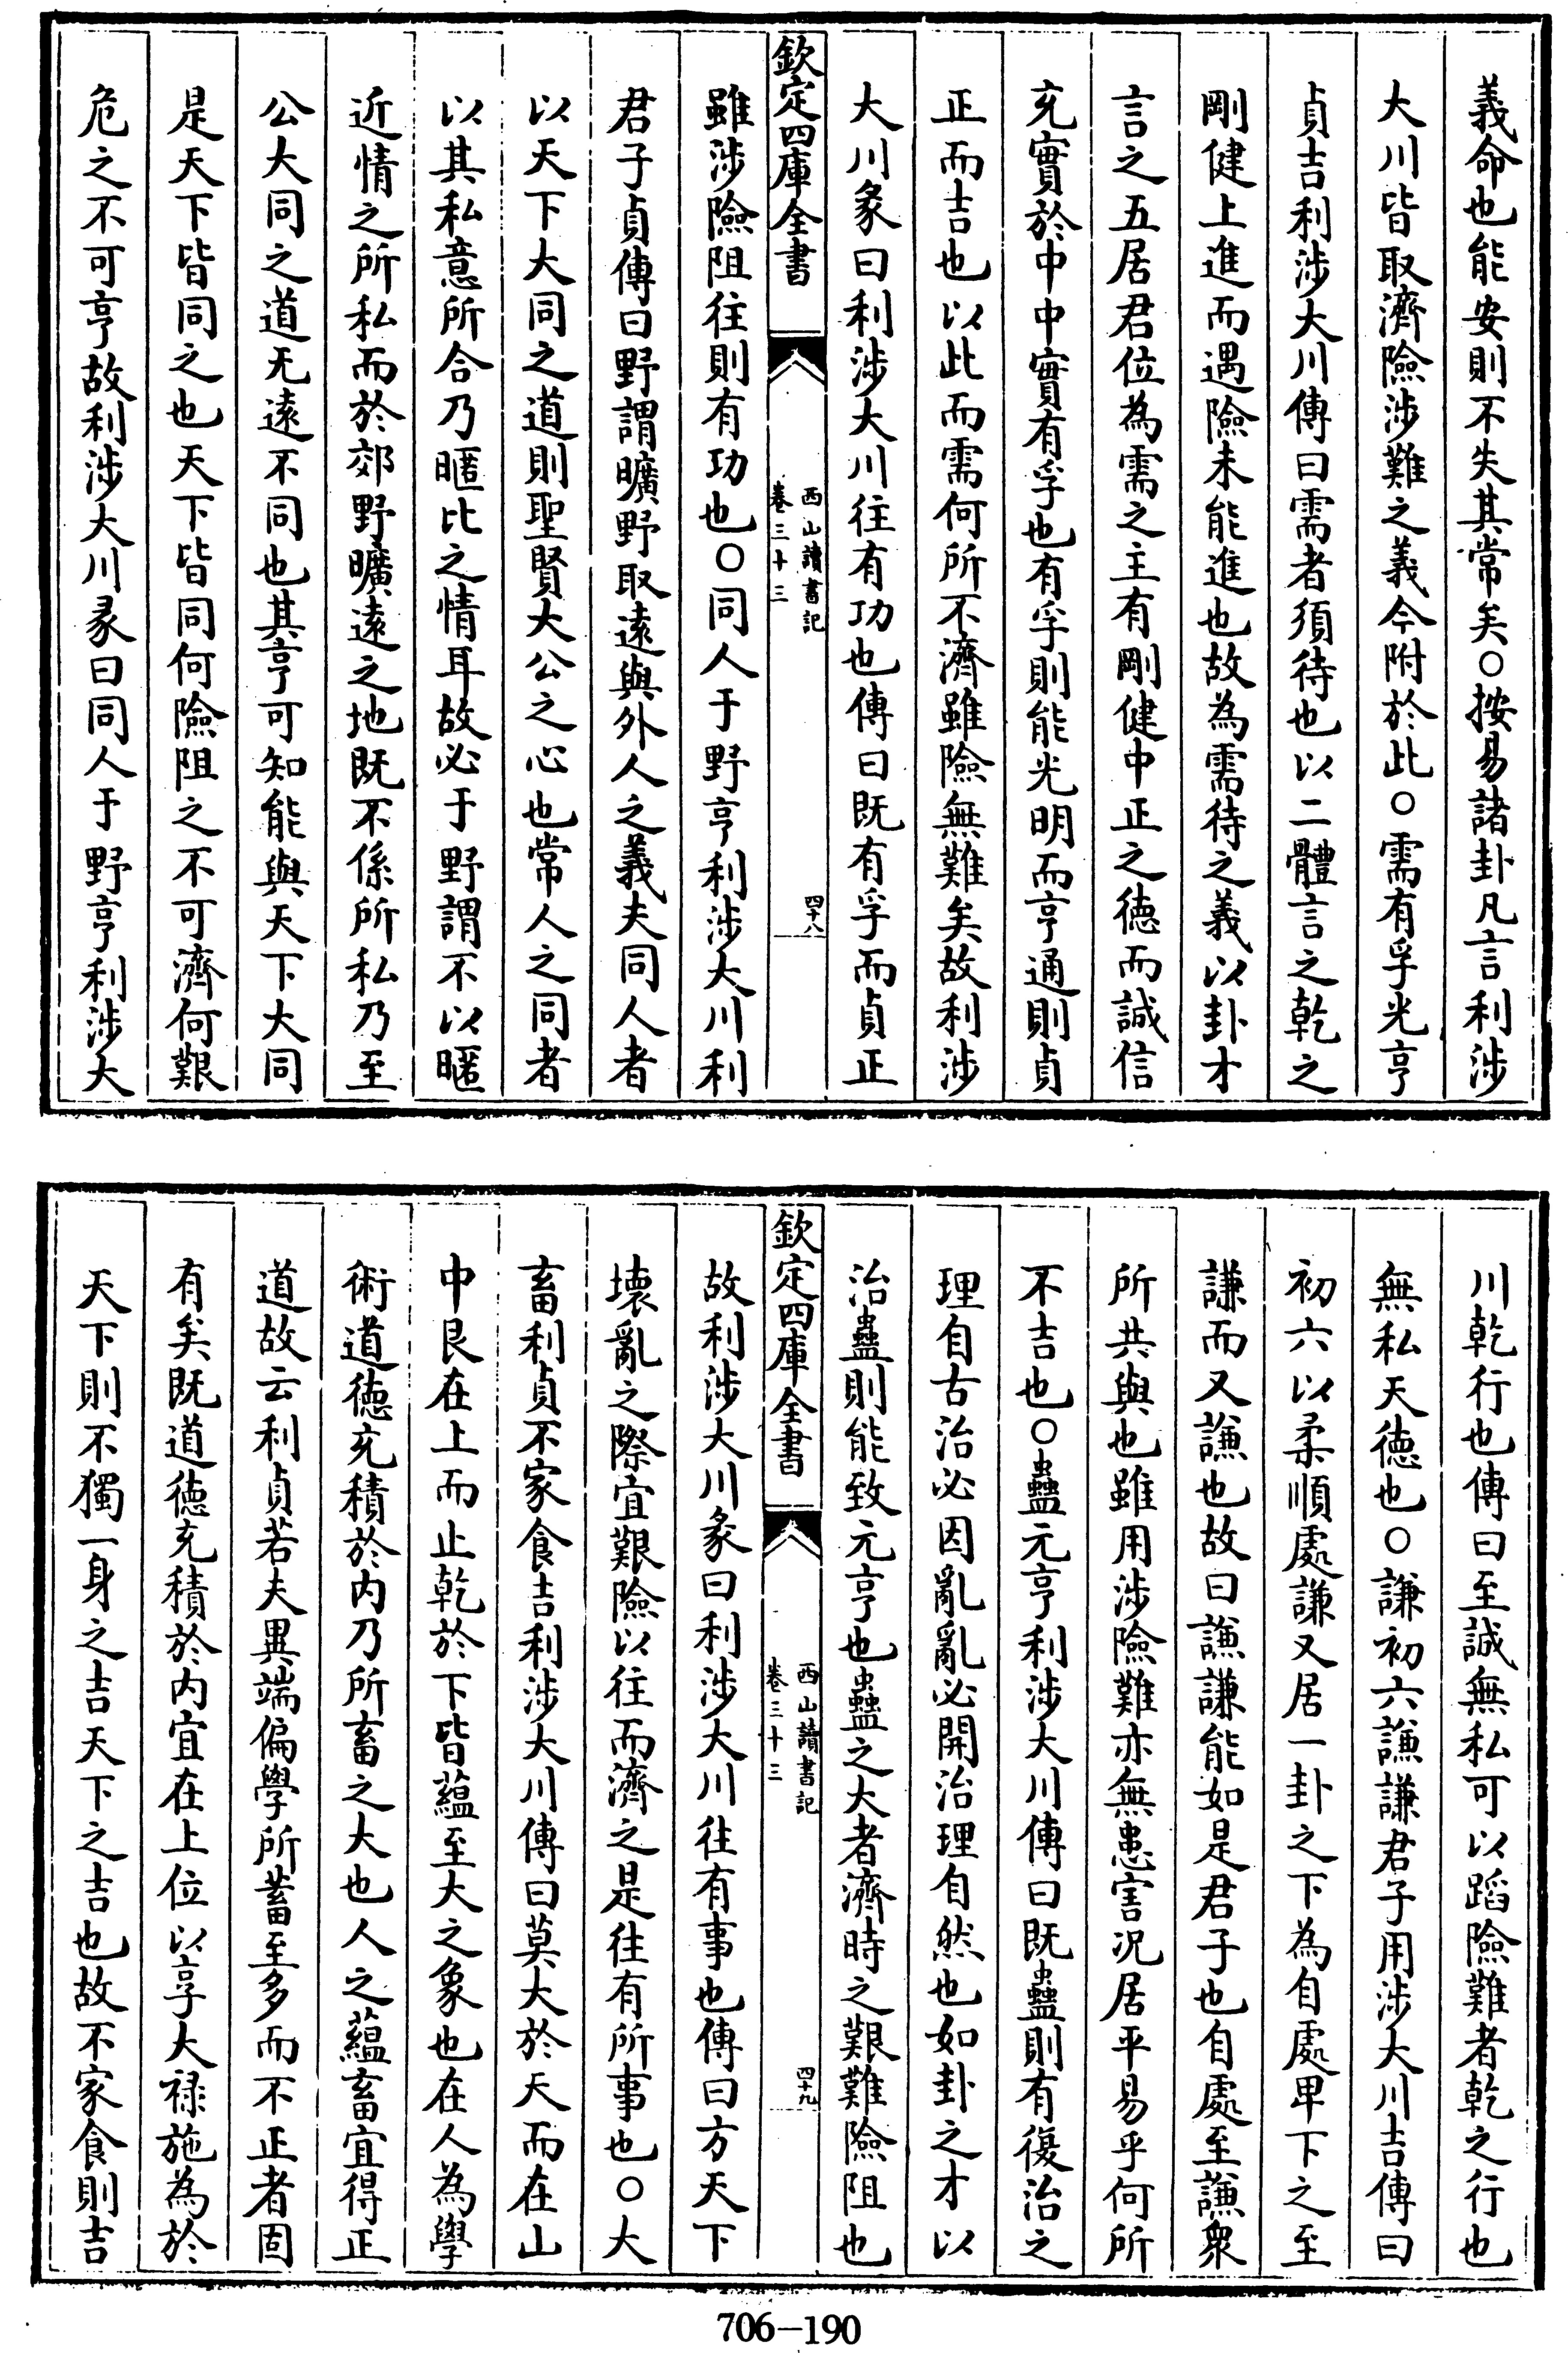 義命也能安則不失其常矣○按易諸卦凡言利涉
大川皆取濟險涉難之義今附於此○需有孚光亨
貞吉利涉大川傳曰需者須待也以二體言之乾之
剛健上進而遇險未能進也故為需待之義以卦才
言之五居君位為需之主有剛健中正之德而誠信
充實於中中實有孚也有孚則能光明而亨通則貞
正而吉也以此而需何所不濟雖險無難矣故利涉
大川彖曰利涉大川往有功也傳曰既有孚而貞正
欽定四庫全書
西山讀書記
卷三十三
四十八
雖涉險阻往則有功也○同人于野亨利涉大川利
君子貞傳曰野謂曠野取遠與外人之義夫同人者
以天下大同之道則聖賢大公之心也常人之同者
以其私意所合乃暱比之情耳故必于野謂不以暱
近情之所私而於郊野曠遠之地既不係所私乃至
公大同之道无遠不同也其亨可知能與天下大同
是天下皆同之也天下皆同何險阻之不可濟何艱
危之不可亨故利涉大川彖曰同人于野亨利涉大
川乾行也傳曰至誠無私可以蹈險難者乾之行也
無私天德也○謙初六謙謙君子用涉大川吉傳曰
初六以柔順處謙又居一卦之下為自處卑下之至
謙而又謙也故曰謙謙能如是君子也自處至謙衆
所共與也雖用涉險難亦無患害况居平易乎何所
不吉也○蠱元亨利涉大川傳曰既蠱則有復治之
理自古治必因亂亂必開治理自然也如卦之才以
治蠱則能致元亨也蠱之大者濟時之艱難險阻也
欽定四庫全書
西山讀書記
卷三十三
四十九
故利涉大川彖曰利涉大川往有事也傳曰方天下
壞亂之際宜艱險以往而濟之是往有所事也○大
畜利貞不家食吉利涉大川傳曰莫大於天而在山
中艮在上而止乾於下皆蘊至大之象也在人為學
術道德充積於內乃所畜之大也人之蘊畜宜得正
道故云利貞若夫異端偏學所蓄至多而不正者固
有矣既道德充積於内宜在上位以享大祿施為於
天下則不獨一身之吉天下之吉也故不家食則吉
706—190